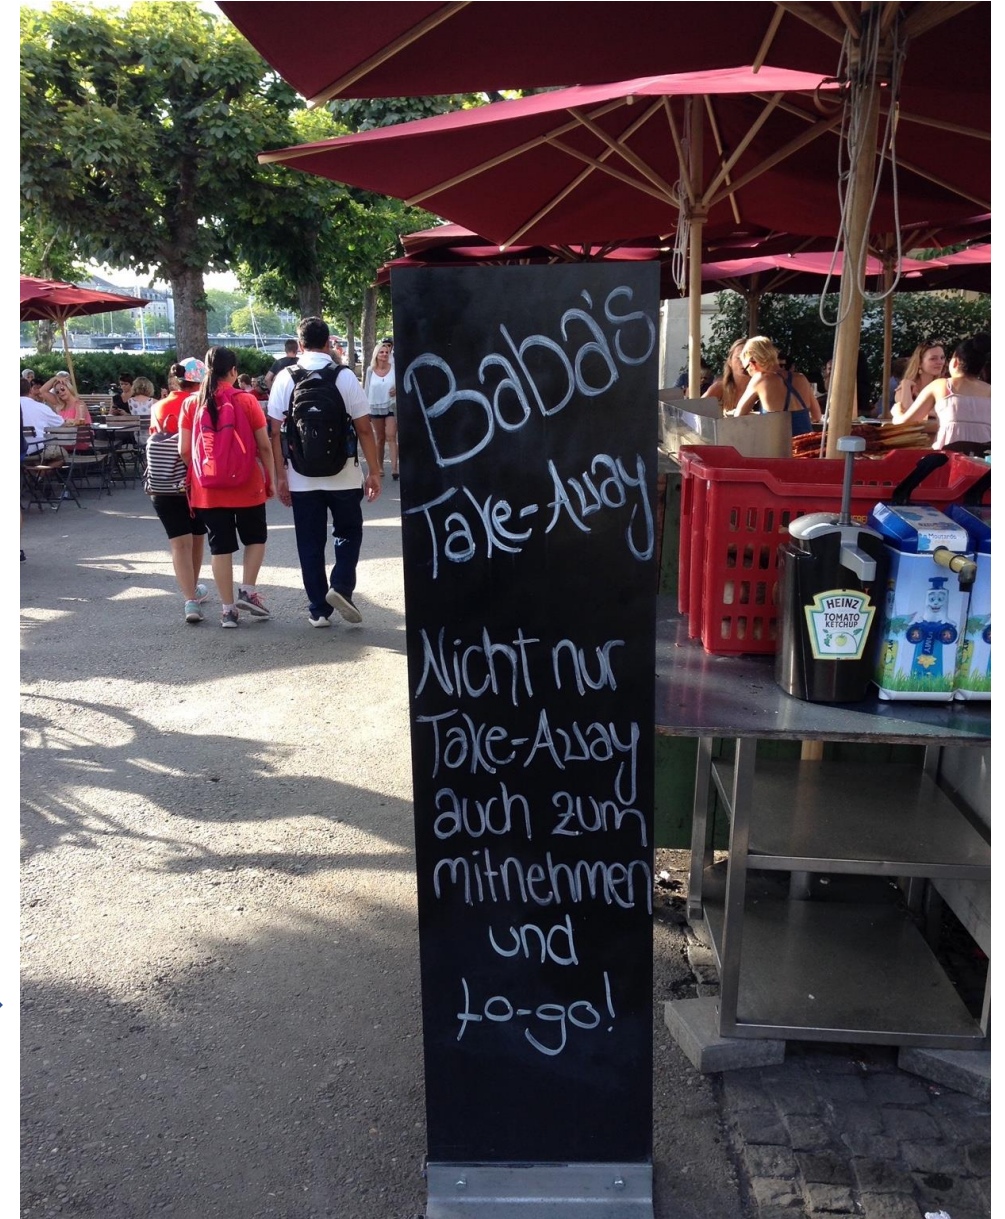 Baba's
Take-Away
Nicht nur
Take-Away
auch zum
mitnehmen
und
to-go!
HEINZ
TOMATO
KETCHUP
Moutarde